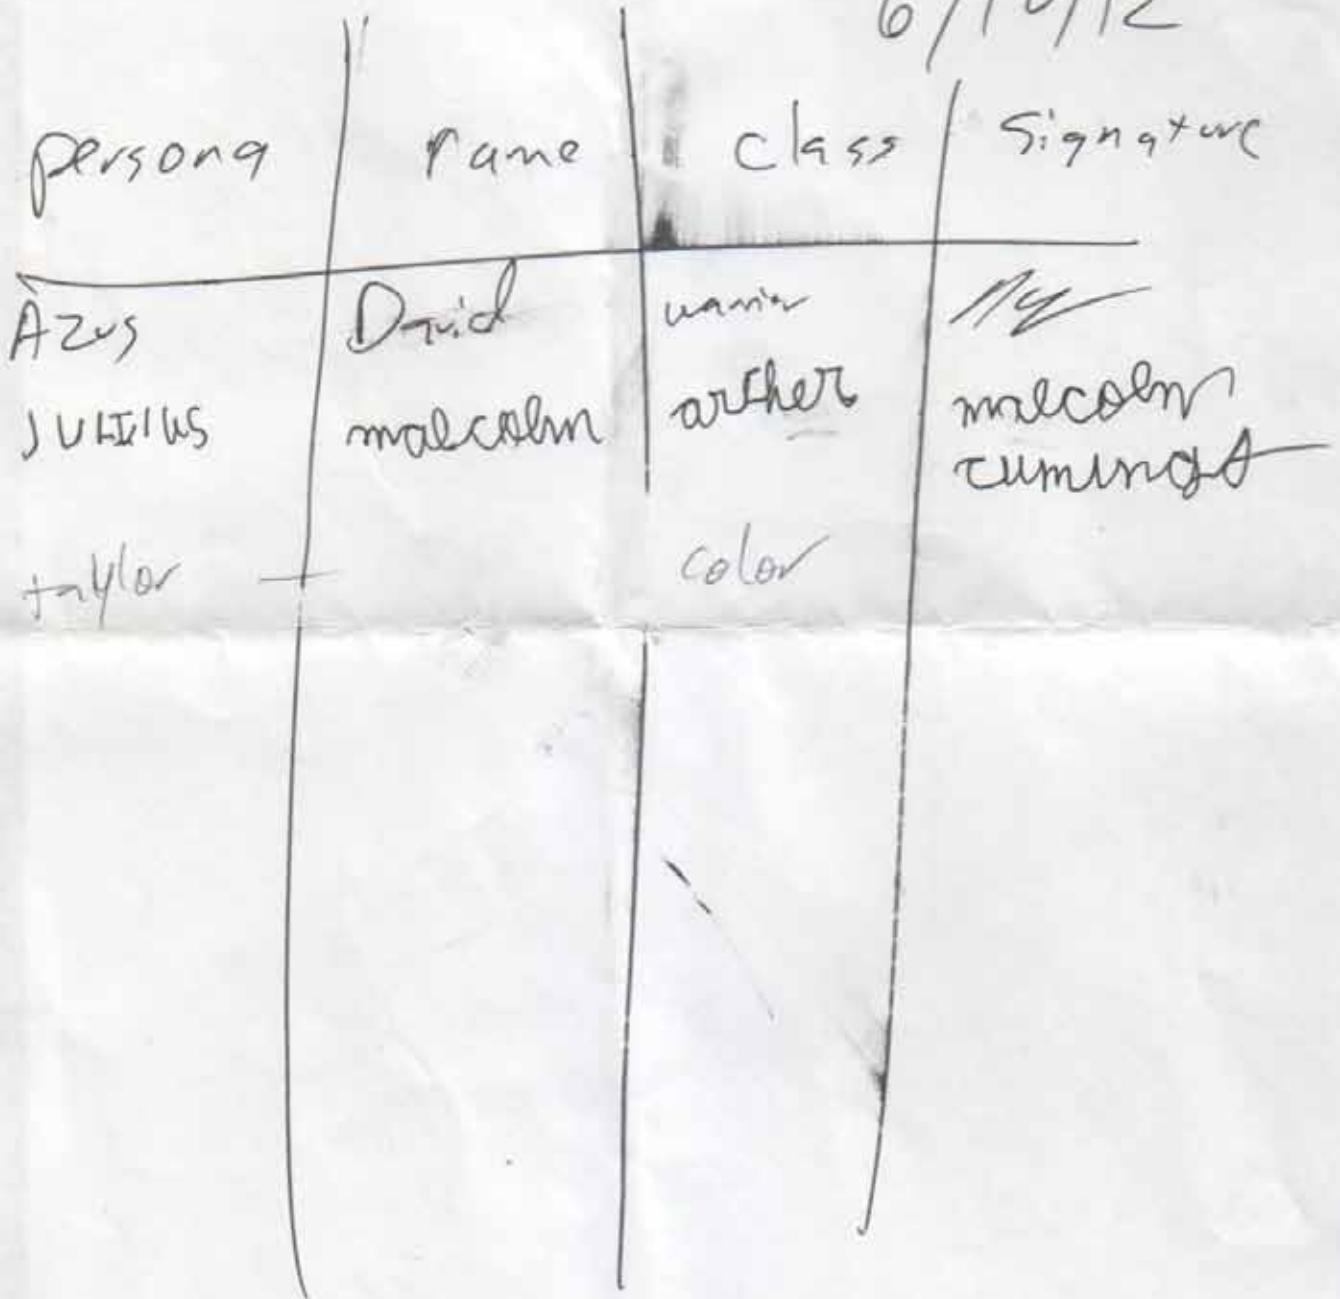 6/10/12
persona name class Signature
Azus David warrior
JULIUS malcolm archer malcolm
cumings
taylor color